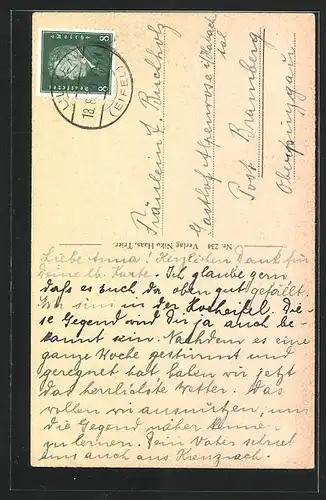 Fräulein J. Buchholz
Gasthof Alpenrose i/Habach
tal
Post Bramberg
Oberpinzgau
Nr. 234 Verlag Niko Haas, Trier.
8 8
Deutsches Reich
(EIFEL)
18.8.
Liebe Anna! Herzlichen Dank für
Deine lb. Karte. Ich glaube gern
dass es Euch da oben gut gefällt.
Wir sind in der Hocheifel. Die-
se Gegend wird Dir ja auch be-
kannt sein. Nachdem es eine
ganze Woche gestürmt und
geregnet hat haben wir jetzt
das herrlichste Wetter. Das
wollen wir ausnutzen, um
die Gegend näher kennen
zu lernen. Dein Vater schrieb
uns auch aus Kreuznach.